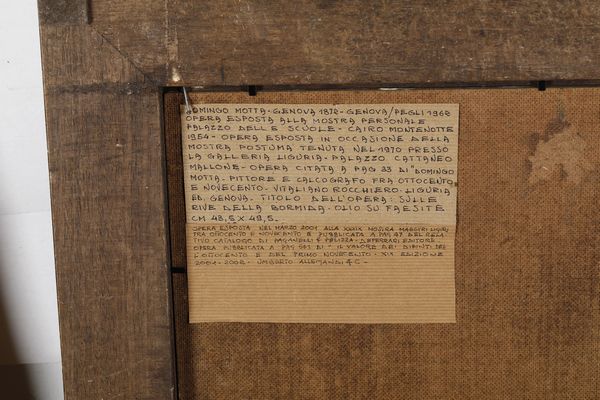 DOMINGO MOTTA - GENOVA 1872 - GENOVA/PEGLI 1962
OPERA ESPOSTA ALLA MOSTRA PERSONALE
PALAZZO DELLE SCUOLE - CAIRO MONTENOTTE
1954 - OPERA ESPOSTA IN OCCASIONE DELLA
MOSTRA POSTUMA TENUTA NEL 1970 PRESSO
LA GALLERIA LIGURIA - PALAZZO CATTANEO
MALLONE - OPERA CITATA A PAG 33 DI "DOMINGO
MOTTA - PITTORE E CALCOGRAFO FRA OTTOCENTO
E NOVECENTO - VITALIANO ROCCHIERO - LIGURIA
ED. GENOVA. TITOLO DELL'OPERA: SULLE
RIVE DELLA BORMIDA - OLIO SU FAESITE
CM 48,5 X 49,5 -
OPERA ESPOSTA NEL MARZO 2001 ALLA XXXIX MOSTRA MAESTRI LIGURI
TRA OTTOCENTO E NOVECENTO E PUBBLICATA A PAG 47 DEL RELA
TIVO CATALOGO DI PAGANELLI & PALIZZA - DEFERRARI EDITORE
OPERA PUBBLICATA A PAG 501 DI - IL VALORE DEI DIPINTI DEL
L'OTTOCENTO E DEL PRIMO NOVECENTO - XIX EDIZIONE
2001 - 2002 - UMBERTO ALLEMANDI & C -